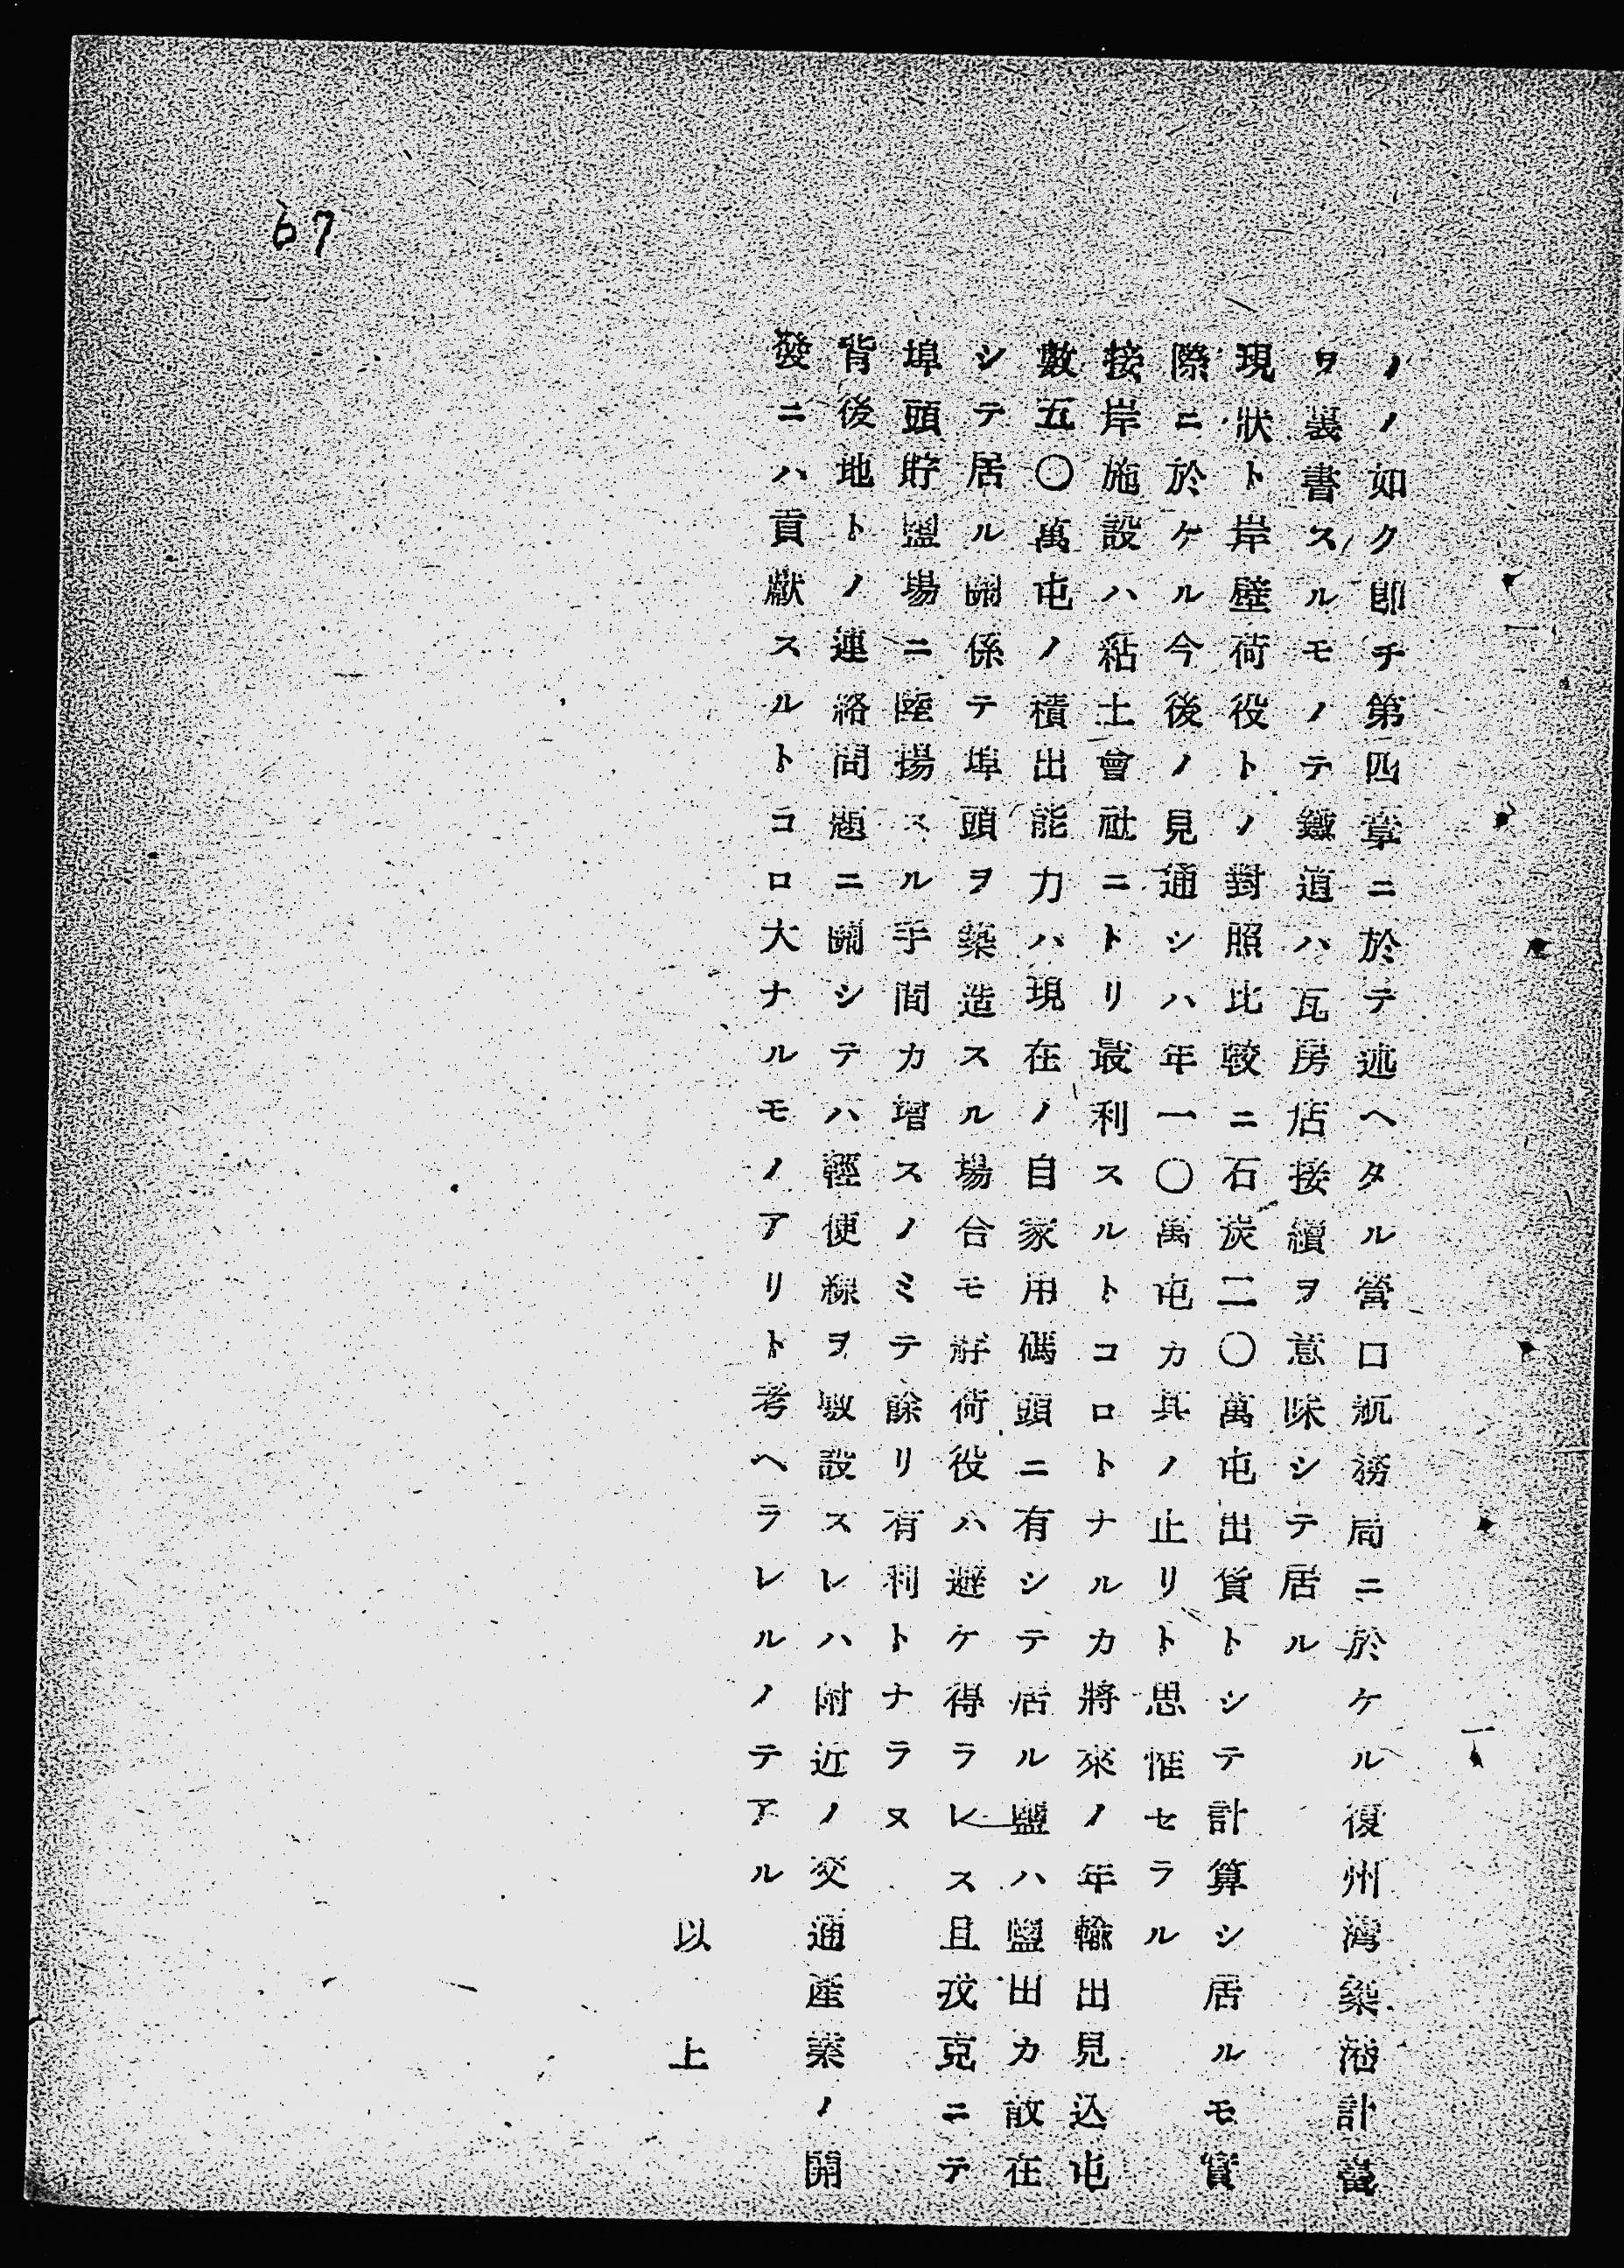 67
ノノ如ク即チ第四章ニ於テ述ヘタル營口航務局ニ於ケル復州灣築港計畫
ヲ裏書スルモノテ鐵道ハ瓦房店接續ヲ意味シテ居ル
現狀ト岸壁荷役トノ對照比較ニ石炭二〇萬屯出貨トシテ計算シ居ルモ實
際ニ於ケル今後ノ見通シハ年一〇萬屯カ其ノ止リト思惟セラル
接岸施設ハ粘土會社ニトリ最利スルトコロトナルカ將來ノ年輸出見込屯
數五〇萬屯ノ積出能力ハ現在ノ自家用碼頭ニ有シテ居ル鹽ハ鹽田カ散在
シテ居ル關係テ埠頭ヲ築造スル場合モ艀荷役ハ避ケ得ラレス且茂克ニテ
埠頭貯鹽場ニ陸揚スル手間カ增スノミテ餘リ有利トナラヌ
背後地トノ連絡問題ニ關シテハ輕便線ヲ敷設スレハ附近ノ交通產業ノ開
發ニハ貢獻スルトコロ大ナルモノアリト考ヘラレルノテアル
以上